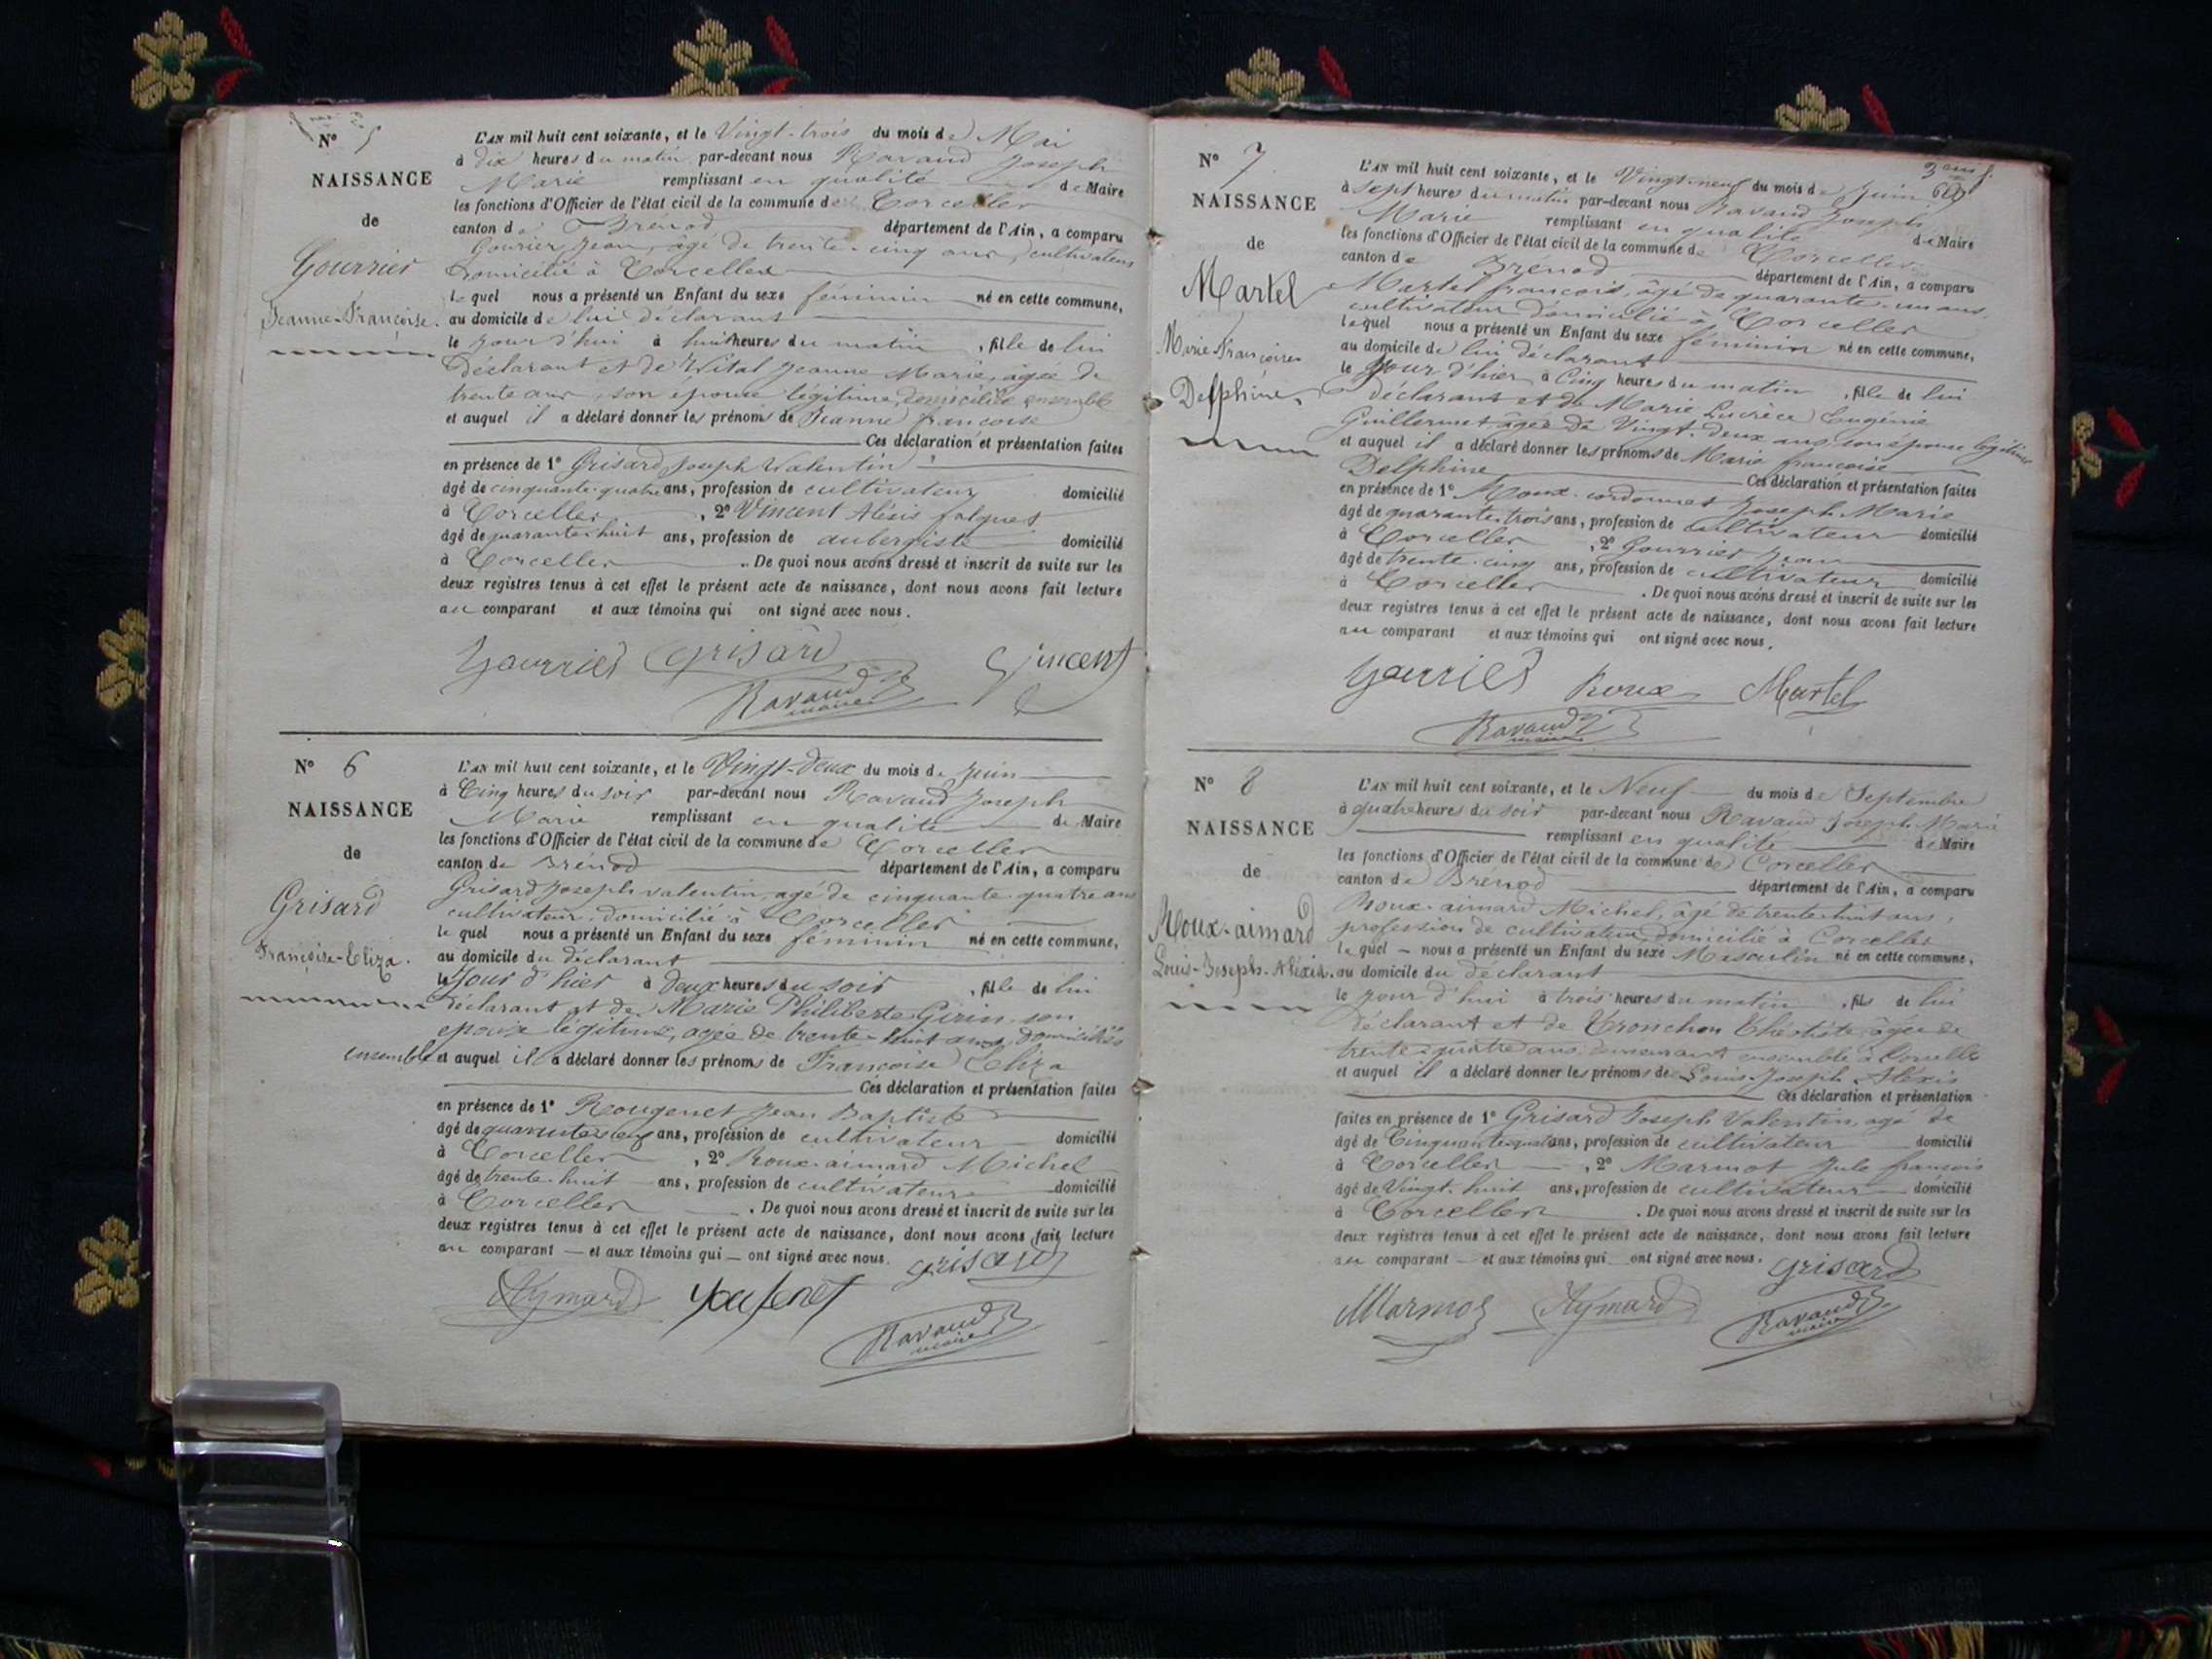 N° 5
NAISSANCE
de
Gourrier
Jeanne-Françoise.
L'AN mil huit cent soixante, et le Vingt-trois du mois de Mai
à dix heures du matin par-devant nous Ravaud Joseph
Marie remplissant en qualité de Maire
les fonctions d'Officier de l'état civil de la commune de Corcelles
canton de Brénod département de l'Ain, a comparu
Gourier Jean, âgé de trente-cinq ans, cultivateur
domicilié à Corcelles
lequel nous a présenté un Enfant du sexe féminin né en cette commune,
au domicile de lui déclarant
le jour d'hui à huit heures du matin, fille de lui
déclarant et de Vital Jeanne Marie, âgée de
trente ans, son épouse légitime, domiciliés ensemble
et auquel il a déclaré donner les prénoms de Jeanne françoise
Ces déclaration et présentation faites
en présence de 1° Grisard Joseph Valentin
âgé de cinquante-quatre ans, profession de cultivateur domicilié
à Corcelles, 2° Vincent Aléxis
âgé de quarante-huit ans, profession de aubergiste domicilié
à Corcelles. De quoi nous avons dressé et inscrit de suite sur les
deux registres tenus à cet effet le présent acte de naissance, dont nous avons fait lecture
au comparant et aux témoins qui ont signé avec nous.
Gourrier Grisard Vincent
Ravaud
maire
N° 6
NAISSANCE
de
Grisard
Françoise-Eliza.
L'AN mil huit cent soixante, et le Vingt-deux du mois de Juin
à Cinq heures du soir par-devant nous Ravaud Joseph
Marie remplissant en qualité de Maire
les fonctions d'Officier de l'état civil de la commune de Corcelles
canton de Brénod département de l'Ain, a comparu
Grisard Joseph valentin, agé de cinquante-quatre ans
cultivateur, domicilié à Corcelles
lequel nous a présenté un Enfant du sexe féminin né en cette commune,
au domicile du déclarant
le Jour d'hier à deux heures du soir, fille de lui
déclarant et de Marie Philiberte Girin son
epouse légitime, agée de trente-huit ans, domiciliés
ensemble et auquel il a déclaré donner les prénoms de Françoise Eliza
Ces déclaration et présentation faites
en présence de 1° Rougenet Jean Baptiste
âgé de ans, profession de cultivateur domicilié
à Corcelles, 2° Roux-aimard Michel
âgé de trente-huit ans, profession de cultivateur domicilié
à Corcelles. De quoi nous avons dressé et inscrit de suite sur les
deux registres tenus à cet effet le présent acte de naissance, dont nous avons fait lecture
au comparant et aux témoins qui ont signé avec nous. Grisard
Aymard
Ravaud
maire
3eme f.
N° 7
NAISSANCE
de
Martel
Marie Françoise
Delphine
L'AN mil huit cent soixante, et le Vingt-neuf du mois de Juin
à sept heures du matin par-devant nous Ravaud Joseph
Marie remplissant en qualité de Maire
les fonctions d'Officier de l'état civil de la commune de Corcelles
canton de Brénod département de l'Ain, a comparu
Martel francois, âgé de quarante-un ans,
cultivateur domicilié à Corcelles
lequel nous a présenté un Enfant du sexe féminin né en cette commune,
au domicile de lui déclarant
le Jour d'hier à Cinq heures du matin, fille de lui
déclarant et de Marie Lucrèce Eugénie
Guillermet âgée de Vingt-deux ans, son épouse légitime
et auquel il a déclaré donner les prénoms de Marie francoise
Delphine Ces déclaration et présentation faites
en présence de 1° Roux-cordonnet Joseph Marie
âgé de quarante-trois ans, profession de cultivateur domicilié
à Corcelles, 2° Gourrier Jean
âgé de trente-cinq ans, profession de cultivateur domicilié
à Corcelles. De quoi nous avons dressé et inscrit de suite sur les
deux registres tenus à cet effet le présent acte de naissance, dont nous avons fait lecture
au comparant et aux témoins qui ont signé avec nous.
Gourrier Roux Martel
Ravaud
maire
N° 8
NAISSANCE
de
Roux-aimard
Louis-Joseph-Aléxis.
L'AN mil huit cent soixante, et le Neuf du mois de Septembre
à quatre heures du soir par-devant nous Ravaud Joseph-Marie
remplissant en qualité de Maire
les fonctions d'Officier de l'état civil de la commune de Corcelles
canton de Brénod département de l'Ain, a comparu
Roux-aimard Michel, âgé de trente-huit ans,
profession de cultivateur, domicilié à Corcelles
lequel nous a présenté un Enfant du sexe Masculin né en cette commune,
au domicile du déclarant
le jour d'hui à trois heures du matin, fils de lui
déclarant et de Tronchon âgée de
trente-quatre ans, demeurant ensemble à Corcelles
et auquel il a déclaré donner les prénoms de Louis-Joseph Aléxis
Ces déclaration et présentation
faites en présence de 1° Grisard Joseph Valentin, agé de
âgé de Cinquante-quatre ans, profession de cultivateur domicilié
à Corcelles, 2° Marmot Jule françois
âgé de Vingt-huit ans, profession de cultivateur domicilié
à Corcelles. De quoi nous avons dressé et inscrit de suite sur les
deux registres tenus à cet effet le présent acte de naissance, dont nous avons fait lecture
au comparant et aux témoins qui ont signé avec nous. Grisard
Marmot Aymard Ravaud
maire